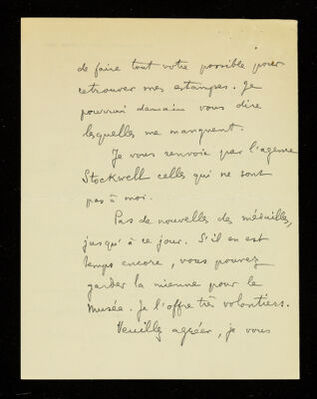 de faire tout votre possible pour
retrouver mes estampes. Je
pourrai demain vous dire
lesquelles me manquent.
Je vous renvoie par l'agence
Stockwell celles qui ne sont
pas à moi.
Pas de nouvelles des médailles,
jusqu'à ce jour. S'il en est
temps encore, vous pouvez
garder la mienne pour le
Musée. Je l'offre très volontiers.
Veuillez agréer, je vous